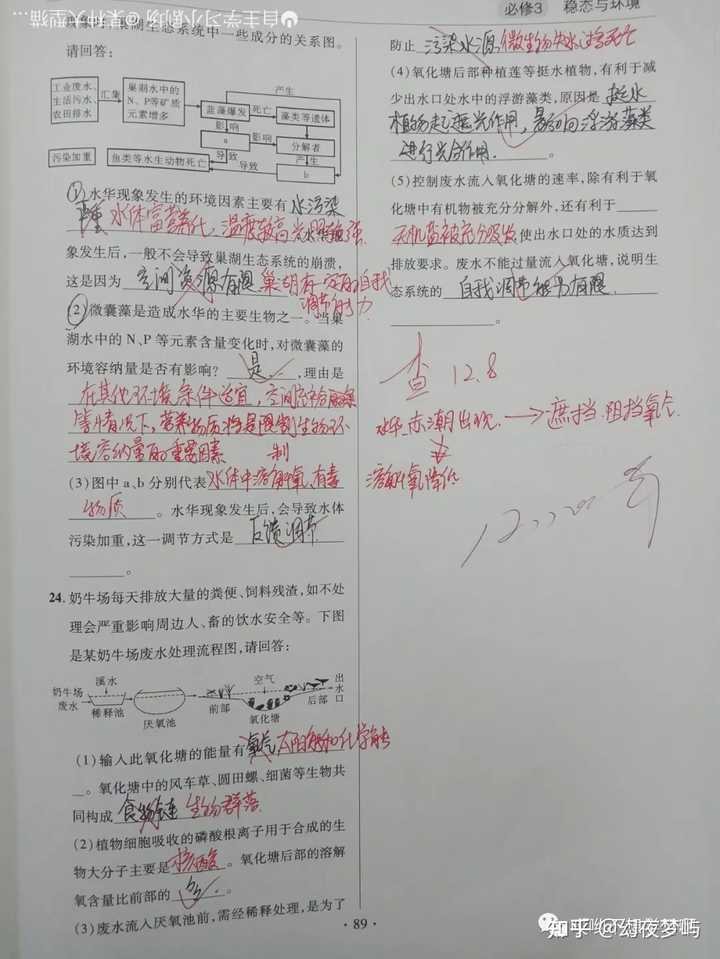 必修3 稳态与环境
巢湖生态系统中一些成分的关系图。
请回答:
工业废水、
生活污水、
农田排水
汇集
巢湖水中的
N、P等矿质
元素增多
蓝藻爆发
死亡
藻类等遗体
产生
影响
a
影响
分解者
导致
产生
污染加重
鱼类等水生动物死亡
导致
b
(1)水华现象发生的环境因素主要有 水污染
水体富营养化,温度较高光照较强
象发生后,一般不会导致巢湖生态系统的崩溃,
这是因为 空间资源有限 巢湖有一定的自我
调节能力
(2)微囊藻是造成水华的主要生物之一。当巢
湖水中的 N、P 等元素含量变化时,对微囊藻的
环境容纳量是否有影响? 是 ,理由是
在其他环境条件适宜,空间充裕
等情况下,营养物质将是限制生物环
境容纳量的重要因素 制
(3)图中 a、b 分别代表 水体中溶解氧、有毒
物质 。水华现象发生后,会导致水体
污染加重,这一调节方式是 反馈调节
。
24. 奶牛场每天排放大量的粪便、饲料残渣,如不处
理会严重影响周边人、畜的饮水安全等。下图
是某奶牛场废水处理流程图,请回答:
奶牛场
废水
溪水
稀释池
厌氧池
前部
空气
氧化塘
后部
出
水
口
(1)输入此氧化塘的能量有 氧气 太阳能和化学能
。氧化塘中的风车草、圆田螺、细菌等生物共
同构成 食物链 生物群落
(2)植物细胞吸收的磷酸根离子用于合成的生
物大分子主要是 核酸 。氧化塘后部的溶解
氧含量比前部的 多 。
(3)废水流入厌氧池前,需经稀释处理,是为了
· 89 ·
防止 污染水源 微生物失水过多死亡
(4)氧化塘后部种植莲等挺水植物,有利于减
少出水口处水中的浮游藻类,原因是 挺水
植物起遮光作用,影响浮游藻类
进行光合作用 。
(5)控制废水流入氧化塘的速率,除有利于氧
化塘中有机物被充分分解外,还有利于
无机盐被充分吸收 使出水口处的水质达到
排放要求。废水不能过量流入氧化塘,说明生
态系统的 自我调节能力有限
。
查 12.8
水华、赤潮出现 → 遮挡、阻挡氧气
溶解氧降低
知乎 @幻夜梦屿